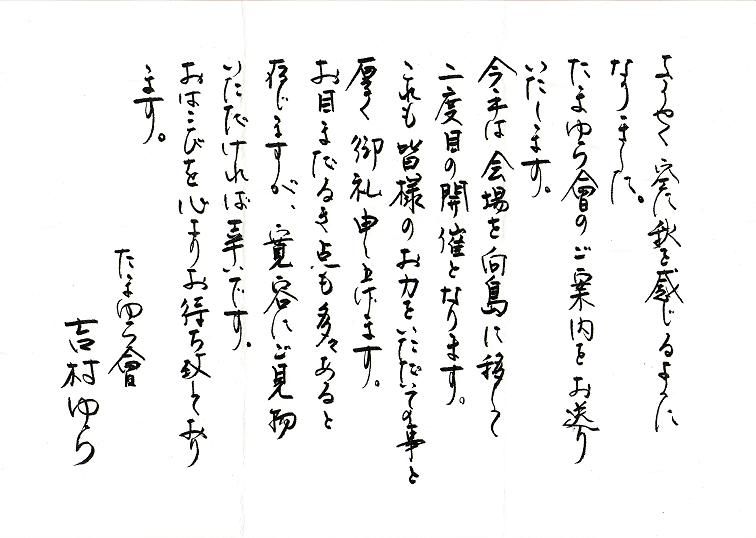 ようやく空に秋を感じるように
なりました。
たまゆら會のご案内をお送り
いたします。
今年は会場を向島に移して
二度目の開催となります。
これも皆様のお力をいただいての事と
厚く御礼申し上げます。
お目まだるき点も多々あると
存じますが、寛容にご見物
いただければ幸いです。
おはこびを心よりお待ち致しており
ます。
たまゆら會
吉村ゆら